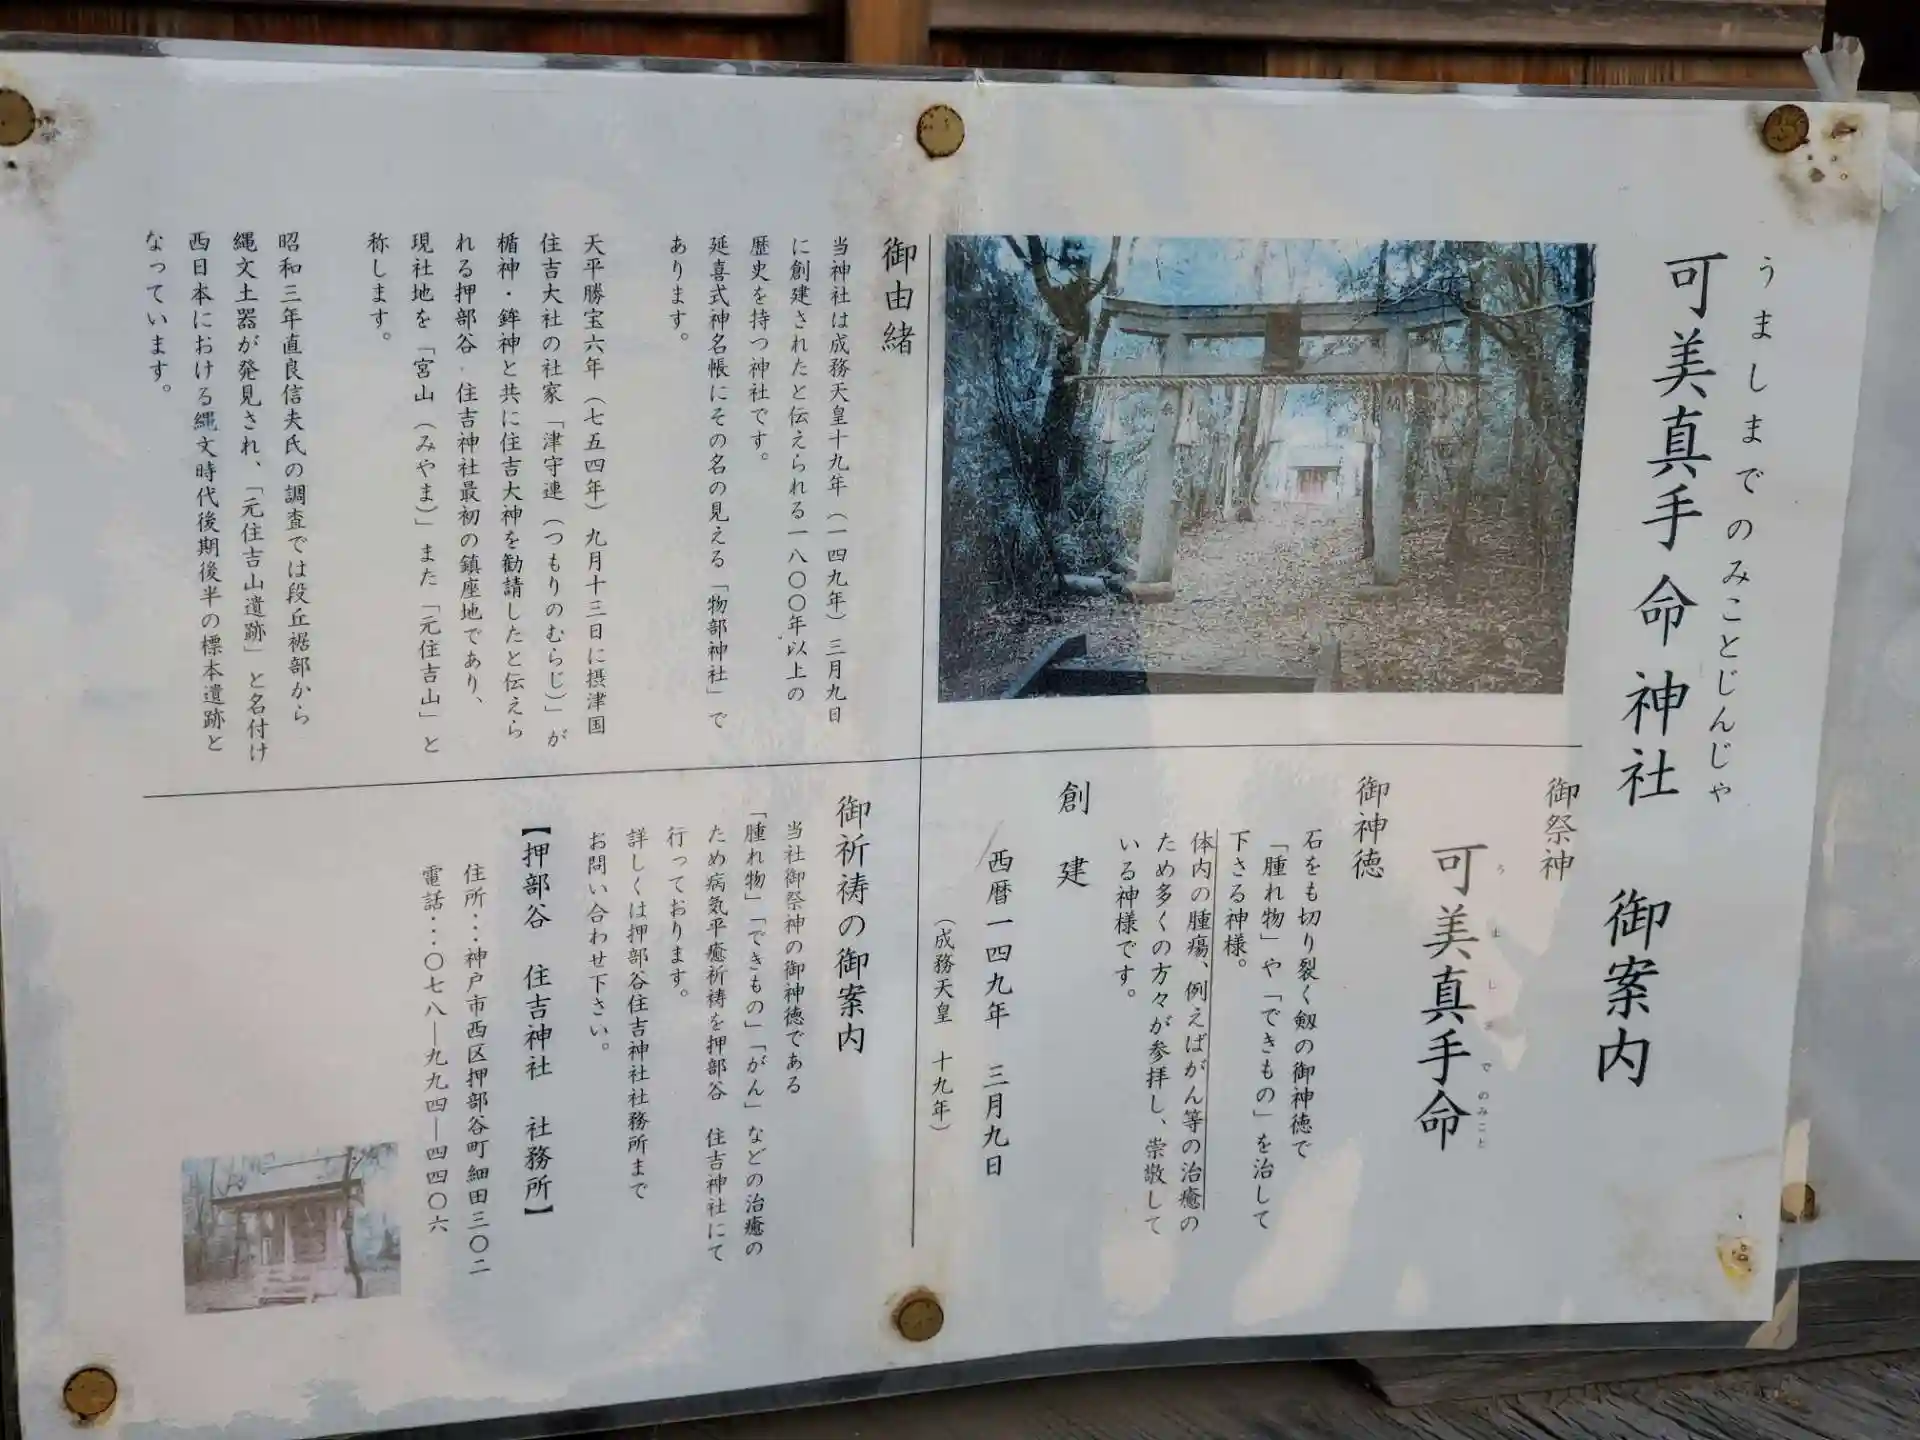 うましまでのみことじんじゃ
可美真手命神社 御案内
御祭神
可美真手命
うましまでのみこと
御神徳
石をも切り裂く剱の御神徳で
「腫れ物」や「できもの」を治して
下さる神様。
体内の腫瘍、例えばがん等の治癒の
ため多くの方々が参拝し、崇敬して
いる神様です。
創建
西暦一四九年 三月九日
（成務天皇 十九年）
御由緒
当神社は成務天皇十九年（一四九年）三月九日
に創建されたと伝えられる一八〇〇年以上の
歴史を持つ神社です。
延喜式神名帳にその名の見える「物部神社」で
あります。
天平勝宝六年（七五四年）九月十三日に摂津国
住吉大社の社家「津守連（つもりのむらじ）」が
楯神・鉾神と共に住吉大神を勧請したと伝えら
れる押部谷 住吉神社最初の鎮座地であり、
現社地を「宮山（みやま）」また「元住吉山」と
称します。
昭和三年直良信夫氏の調査では段丘裾部から
縄文土器が発見され、「元住吉山遺跡」と名付け
西日本における縄文時代後期後半の標本遺跡と
なっています。
御祈祷の御案内
当社御祭神の御神徳である
「腫れ物」「できもの」「がん」などの治癒の
ため病気平癒祈祷を押部谷 住吉神社にて
行っております。
詳しくは押部谷住吉神社社務所まで
お問い合わせ下さい。
【押部谷 住吉神社 社務所】
住所･･･神戸市西区押部谷町細田三〇二
電話･･･〇七八―九九四―四四〇六